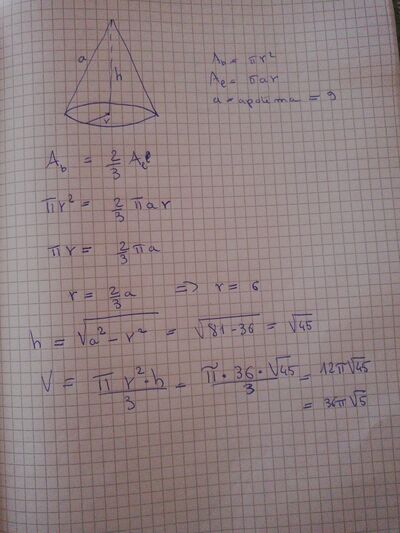 a
h
r
A_b = πr²
A_ℓ = πar
a = = 9
A_b = 2/3 A_ℓ
πr² = 2/3 πar
πr = 2/3 πa
r = 2/3 a => r = 6
h = √(a² - r²) = √(81-36) = √45
V = π r²·h / 3 = π·36·√45 / 3 = 12π√45
= 36π√5